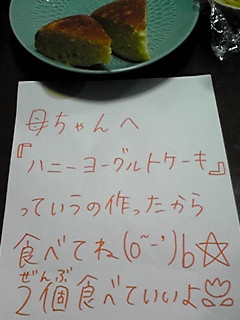 母ちゃんへ
『ハニーヨーグルトケーキ』
っていうの作ったから
食べてね(o˘ー˘)b☆
ぜんぶ
2個食べていいよ